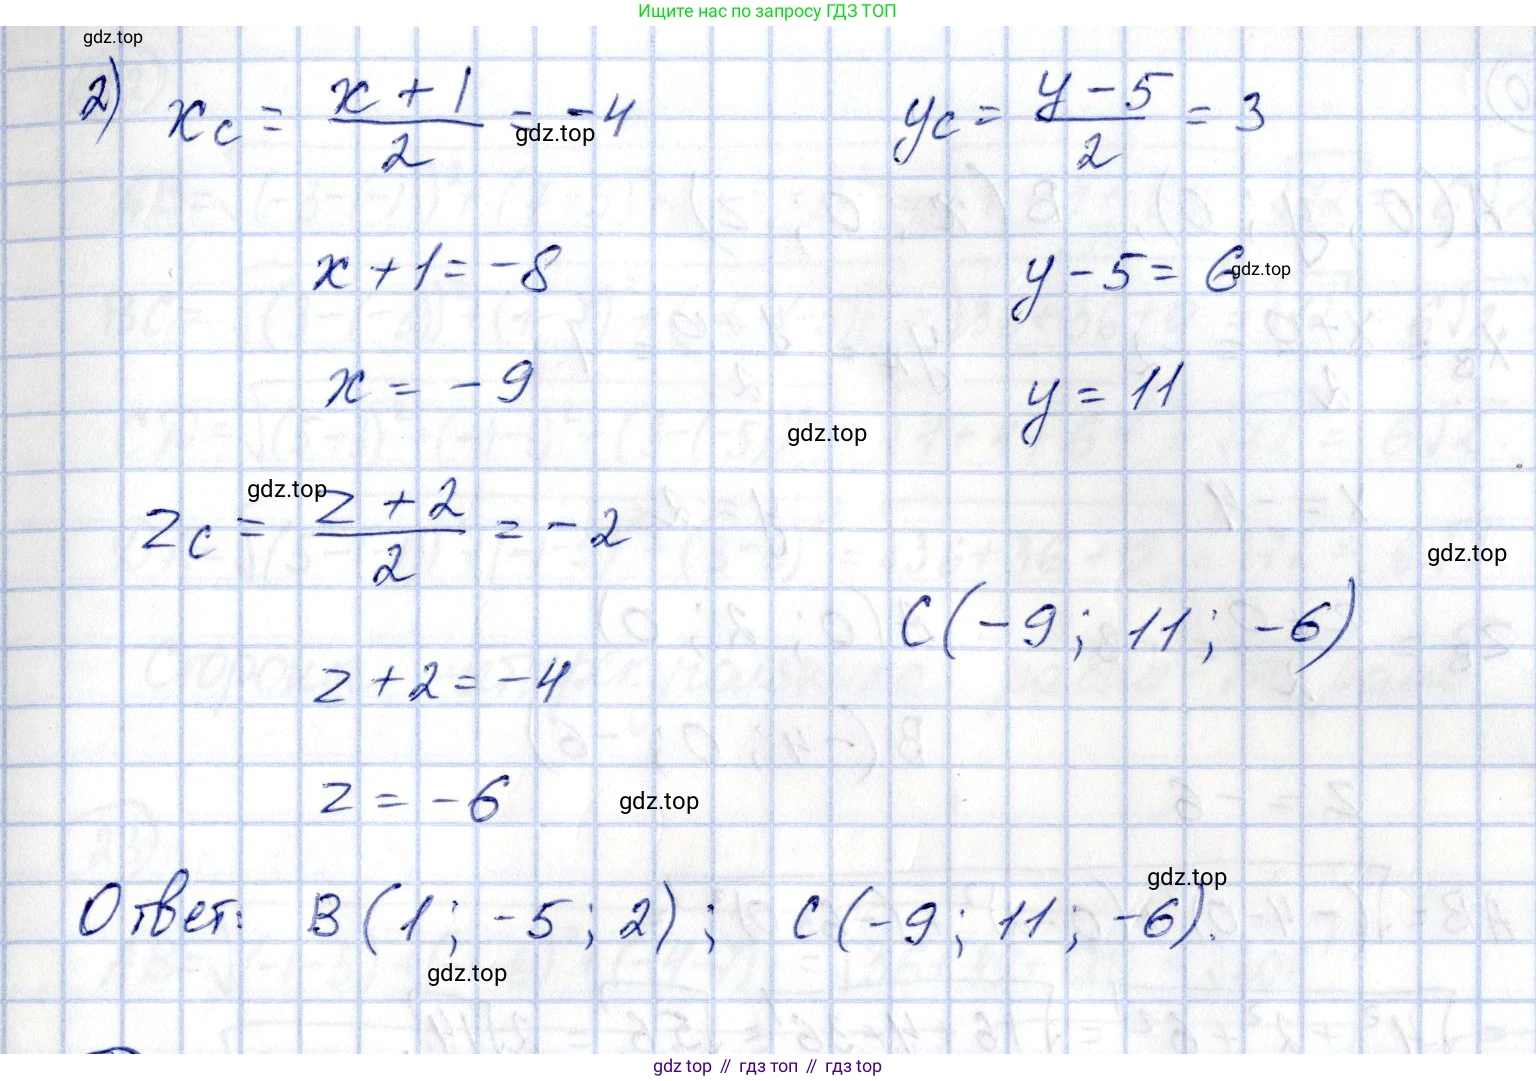 Ищите нас по запросу ГДЗ ТОП
gdz.top
2) x_c = (x + 1)/2 = -4
y_c = (y - 5)/2 = 3
gdz.top
x + 1 = -8
y - 5 = 6
gdz.top
x = -9
y = 11
gdz.top
gdz.top
z_c = (z + 2)/2 = -2
gdz.top
C(-9; 11; -6)
z + 2 = -4
z = -6
gdz.top
gdz.top
Ответ: B(1; -5; 2); C(-9; 11; -6).
gdz.top
gdz.top // гдз топ // gdz.top